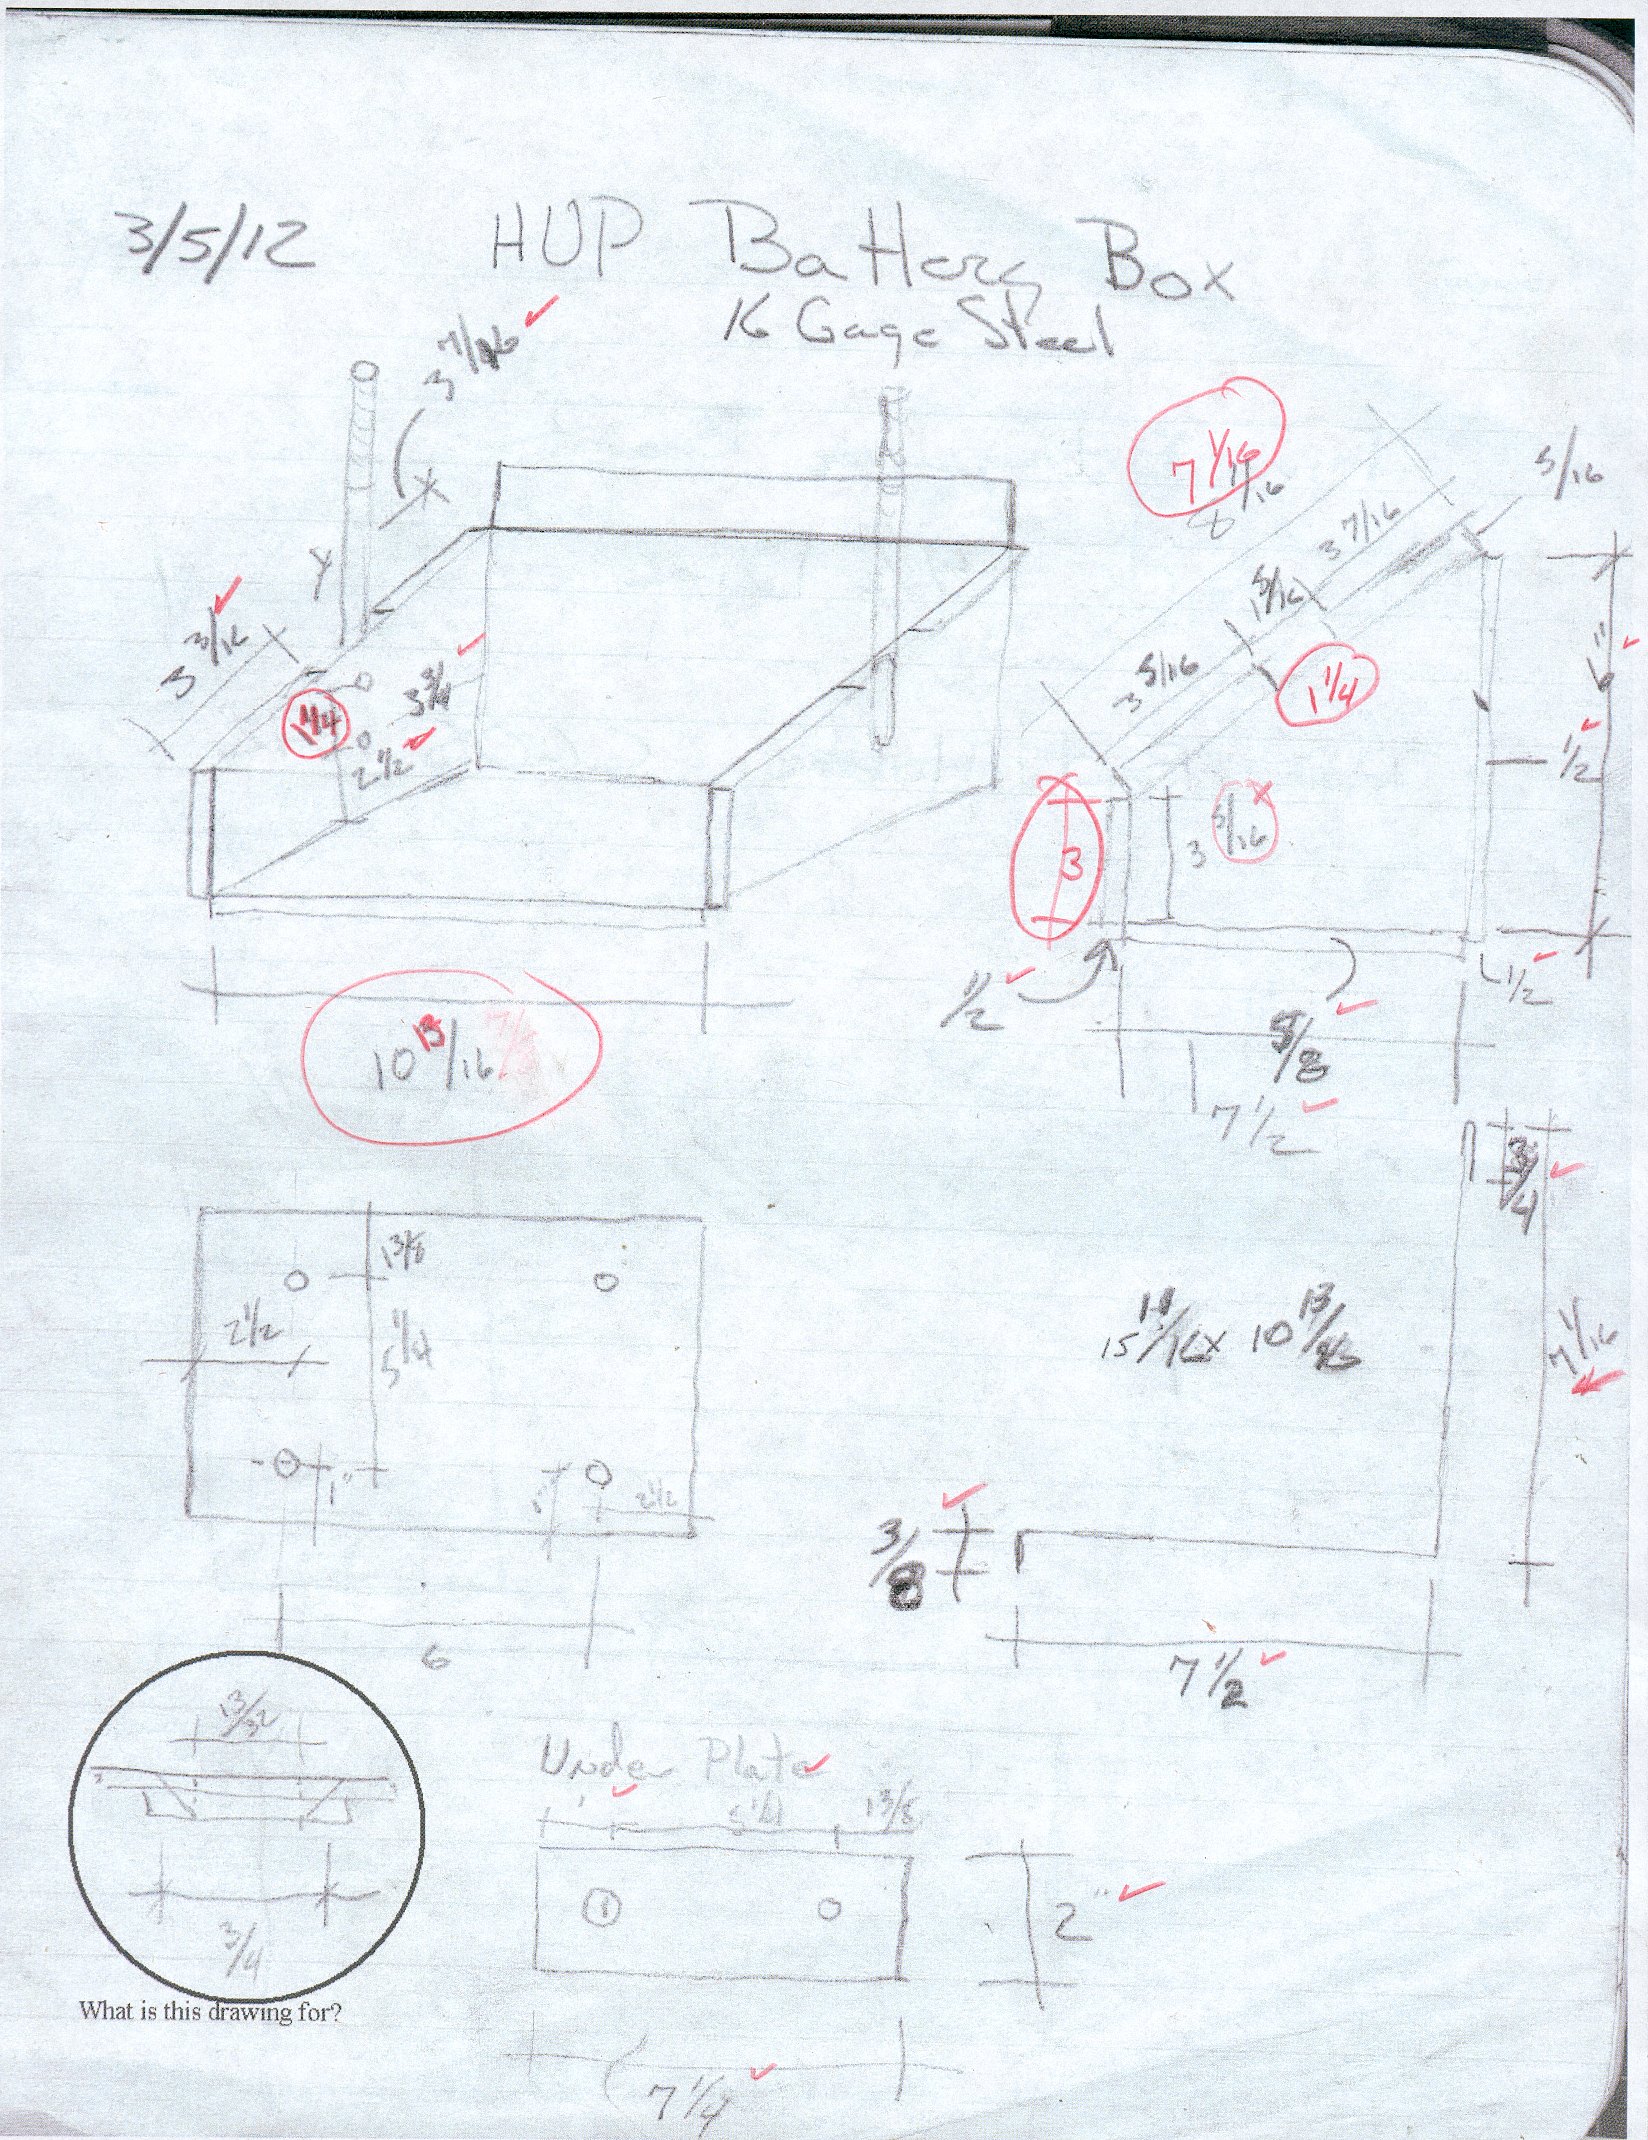 3/5/12 HUP Battery Box
16 Gage Steel
3 7/16
X
Y
3 3/16
1 1/4
3 3/4
2 1/2
10 13/16
7 1/16
8 1/16
5/16
3 7/16
1 5/16
3 5/16
1 1/4
6"
1/2
3
3 5/16
1/2
1/2
5/8
7 1/2
1 3/8
2 1/2
5 1/4
1"
2 1/2
6
3/4
15 11/16 x 10 13/16
7 1/16
3/8
7 1/2
13/32
3/4
What is this drawing for?
Under Plate
1
5 1/4
1 3/8
1
2"
7 1/4